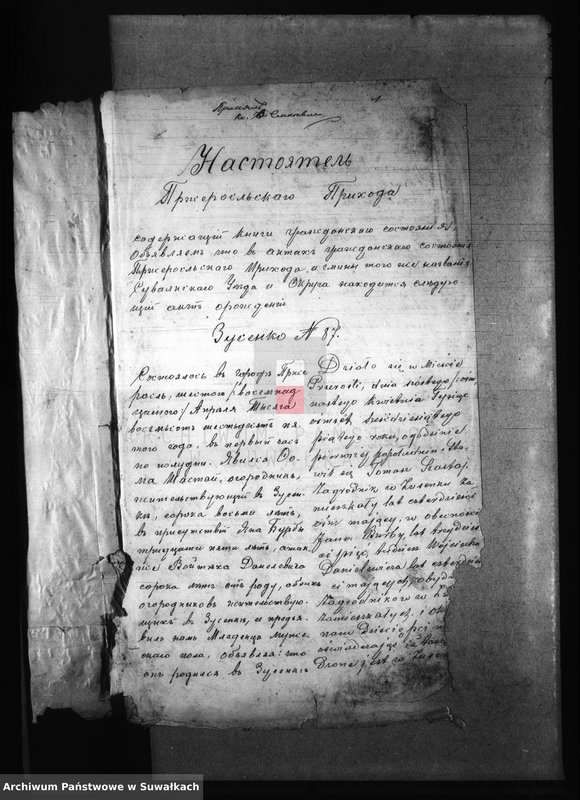 Настоятель
Пржерослького Прихода
содержащій книги гражданского состоянія,
Объявляемъ что въ актахъ гражданского состоянія
Пржеросльского Прихода, гмины того же названія
Сувалкскаго Уезда и Округа находится слѣдую-
щій актъ орожденіи
Зусенко N 87.
Состоялось въ городѣ Прже
росль, шестого /восемнад
цатого/ Апрѣля Тысяча
восемьсотъ шестьдесятъ пя
того года, въ первый часъ
по полудни. Явился Ѳо-
ма огородникъ,
жительствующій въ Зусен-
кѣ, сорока восьми лѣтъ,
въ присутствіи Яна Бурбы
тридцати пяти лѣтъ, а так
же Войтѣха Данелевича
сорока лѣтъ отъ роду, обоихъ
огородниковъ жительствую-
щихъ въ Зусенкѣ, и предъя-
вилъ намъ Младенца мужс-
кого пола, объявляя: что
онъ родился въ Зусенкѣ
Działo się w Mieście
Przerośli, dnia szóstego /ośm
nastego Kwietnia Tysiąc
ośmset sześćdziesiątego
piątego roku, o godzinie
pierwszej popołudniu, Sta-
wił się Toman
Zagrodnik w Zusenku za
mieszkały lat czterdzieści
ośm mający, w obecności
Jana Burby, lat trzydzieś
ci pięć, tudzież Wojciecha
Danielewicza lat czterdzieś
ci mających, obydw
Zagrodników w Zu
zamieszkałych, i ok
nam Dziecię płci m
oświadczając iż
Drone jest w Zusen
Archiwum Państwowe w Suwałkach